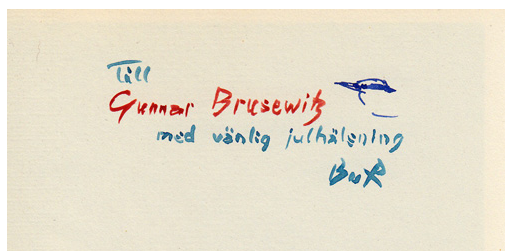 Till
Gunnar Brusewitz
med vänlig julhälsning
BuR